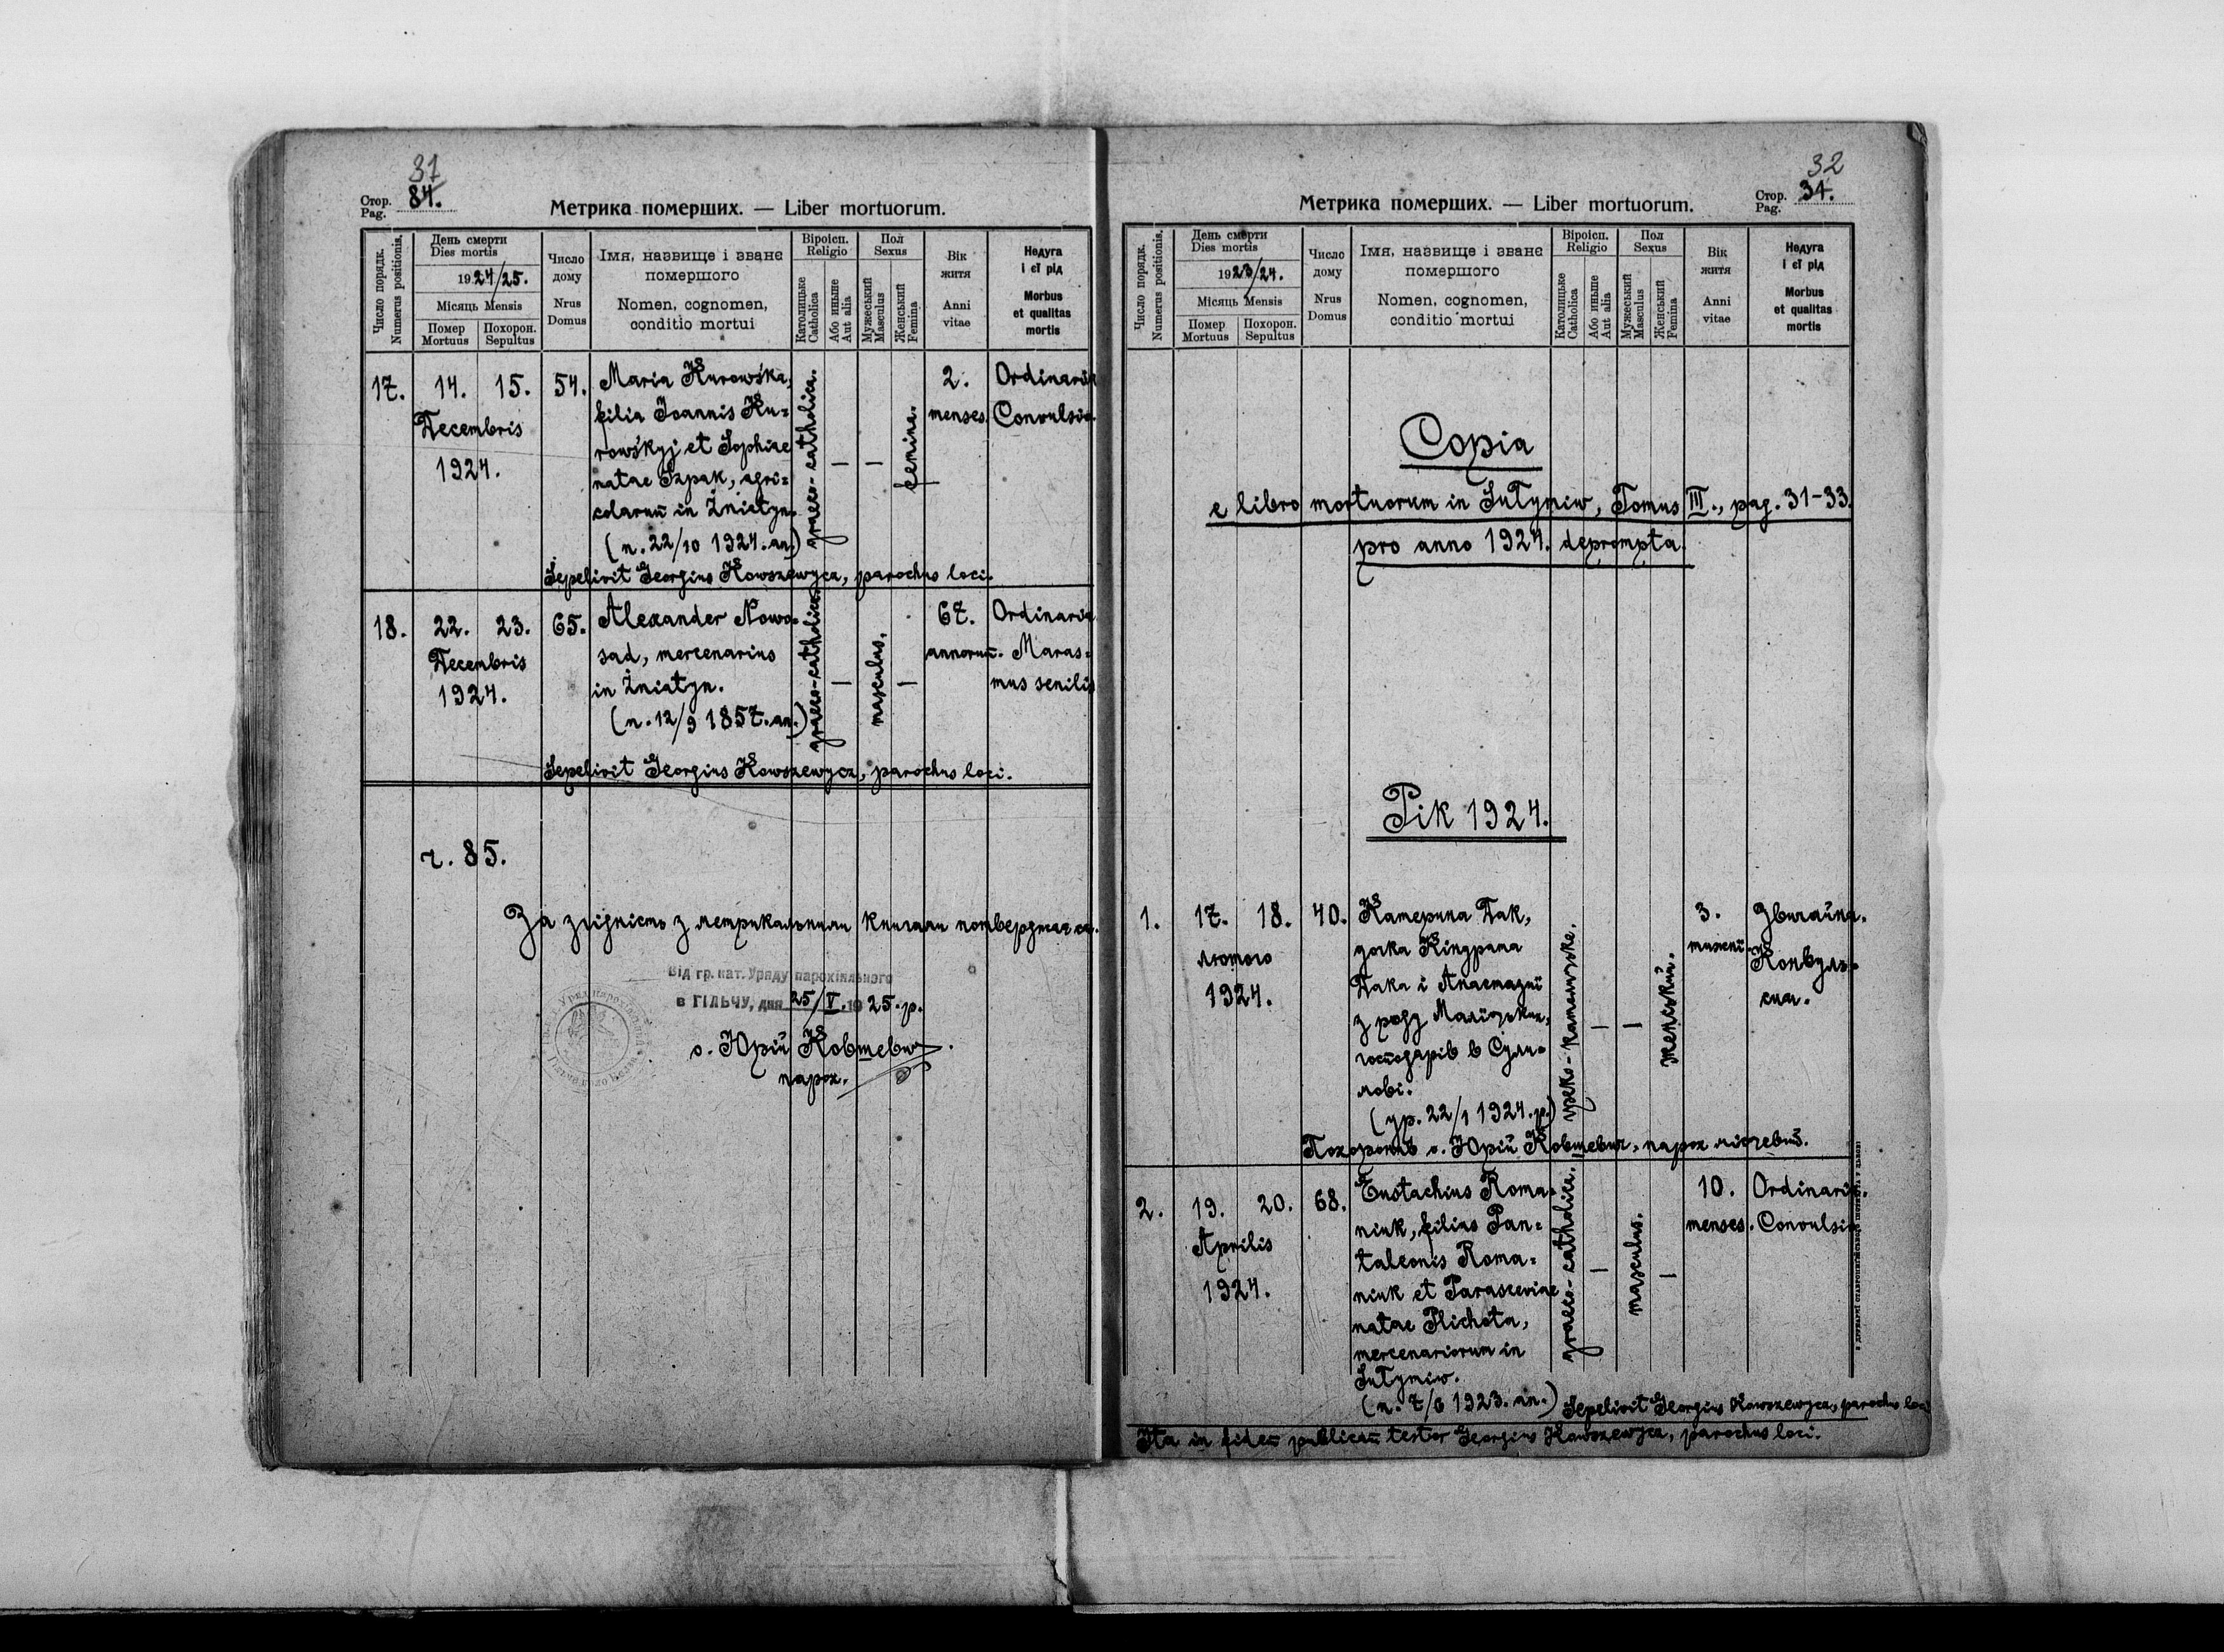 31
Стор. Pag. 84.
Метрика померших. — Liber mortuorum.
Число порядк. Numerus positionis.
День смерти
Dies mortis
1924/25.
Місяць Mensis
Помер Mortuus
Похорон. Sepultus
Число дому
Nrus Domus
Імя, назвище і зване
помершого
Nomen, cognomen,
conditio mortui
Віроісп.
Religio
Католицьке Catholica
Або иньше Aut alia
Пол
Sexus
Мужеський Masculus
Женський Femina
Вік
житя
Anni
vitae
Недуга
і єї рід
Morbus
et qualitas
mortis
17. 14. 15. 54. Maria Kurowśka, 2. Ordinaria
filia Joannis Ku= menses. Convulsio.
Decembris
rowśkyj et Sophiae
1924.
natae Szpak, agri=
colarum̄ in Żniatyn.
(n. 22/10 1924. an.)
graeco-catholica.
— —
femina.
Sepelivit Georgius Kowszewycz, parochus loci.
18. 22. 23. 65. Alexander Nowo= 67. Ordinaria
Decembris
sad, mercenarius annorum̄. Maras=
1924.
in Żniatyn. mus senilis
(n. 12/9 1857. an.)
graeco-catholica.
—
masculus.
—
Sepelivit Georgius Kowszewycz, parochus loci.
ч. 85.
За згідність з метрикальними книгами потверджає ся.
Від гр. кат. Уряду парохіяльного
в ГІЛЬЧУ, дня 25/V. 1925. р.
о. Юрій Ковшевич.
парох.
32
Стор. Pag. 31.
Метрика померших. — Liber mortuorum.
Число порядк. Numerus positionis.
День смерти
Dies mortis
1923/24.
Місяць Mensis
Помер Mortuus
Похорон. Sepultus
Число дому
Nrus Domus
Імя, назвище і зване
помершого
Nomen, cognomen,
conditio mortui
Віроісп.
Religio
Католицьке Catholica
Або иньше Aut alia
Пол
Sexus
Мужеський Masculus
Женський Femina
Вік
житя
Anni
vitae
Недуга
і єї рід
Morbus
et qualitas
mortis
Copia
e libro mortuorum in Sułymiw, Tomus III., pag. 31-33.
pro anno 1924. deprompta.
Рік 1924.
1. 17. 18. 40. Катерина Гак, 3. Звичайна.
дочка Кіндрата Конвуль=
лютого
Гака і Анастазиї сия.
1924.
з роду
господарів в Сули=
мові.
(ур. 22/1 1924. р.)
греко-католицьке.
— —
женський.
Похоронив о. Юрій Ковшевич, парох місцевий.
2. 19. 20. 68. Eustachius Roma= 10. Ordinaria.
niuk, filius Pan= menses. Convulsio
Aprilis
taleonis Roma=
1924.
niuk et Parasceviae
natae Plichota,
mercenariorum in
Sułymiw.
(n. 7/6 1923. an.) Sepelivit Georgius Kowszewycz, parochus loci
graeco-catholica.
—
masculus.
—
Ita in fidem̄ publicam̄ testor Georgius Kowszewycz, parochus loci.